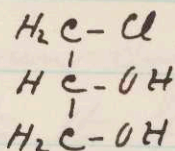 H₂C-Cl
HC-OH
H₂C-OH